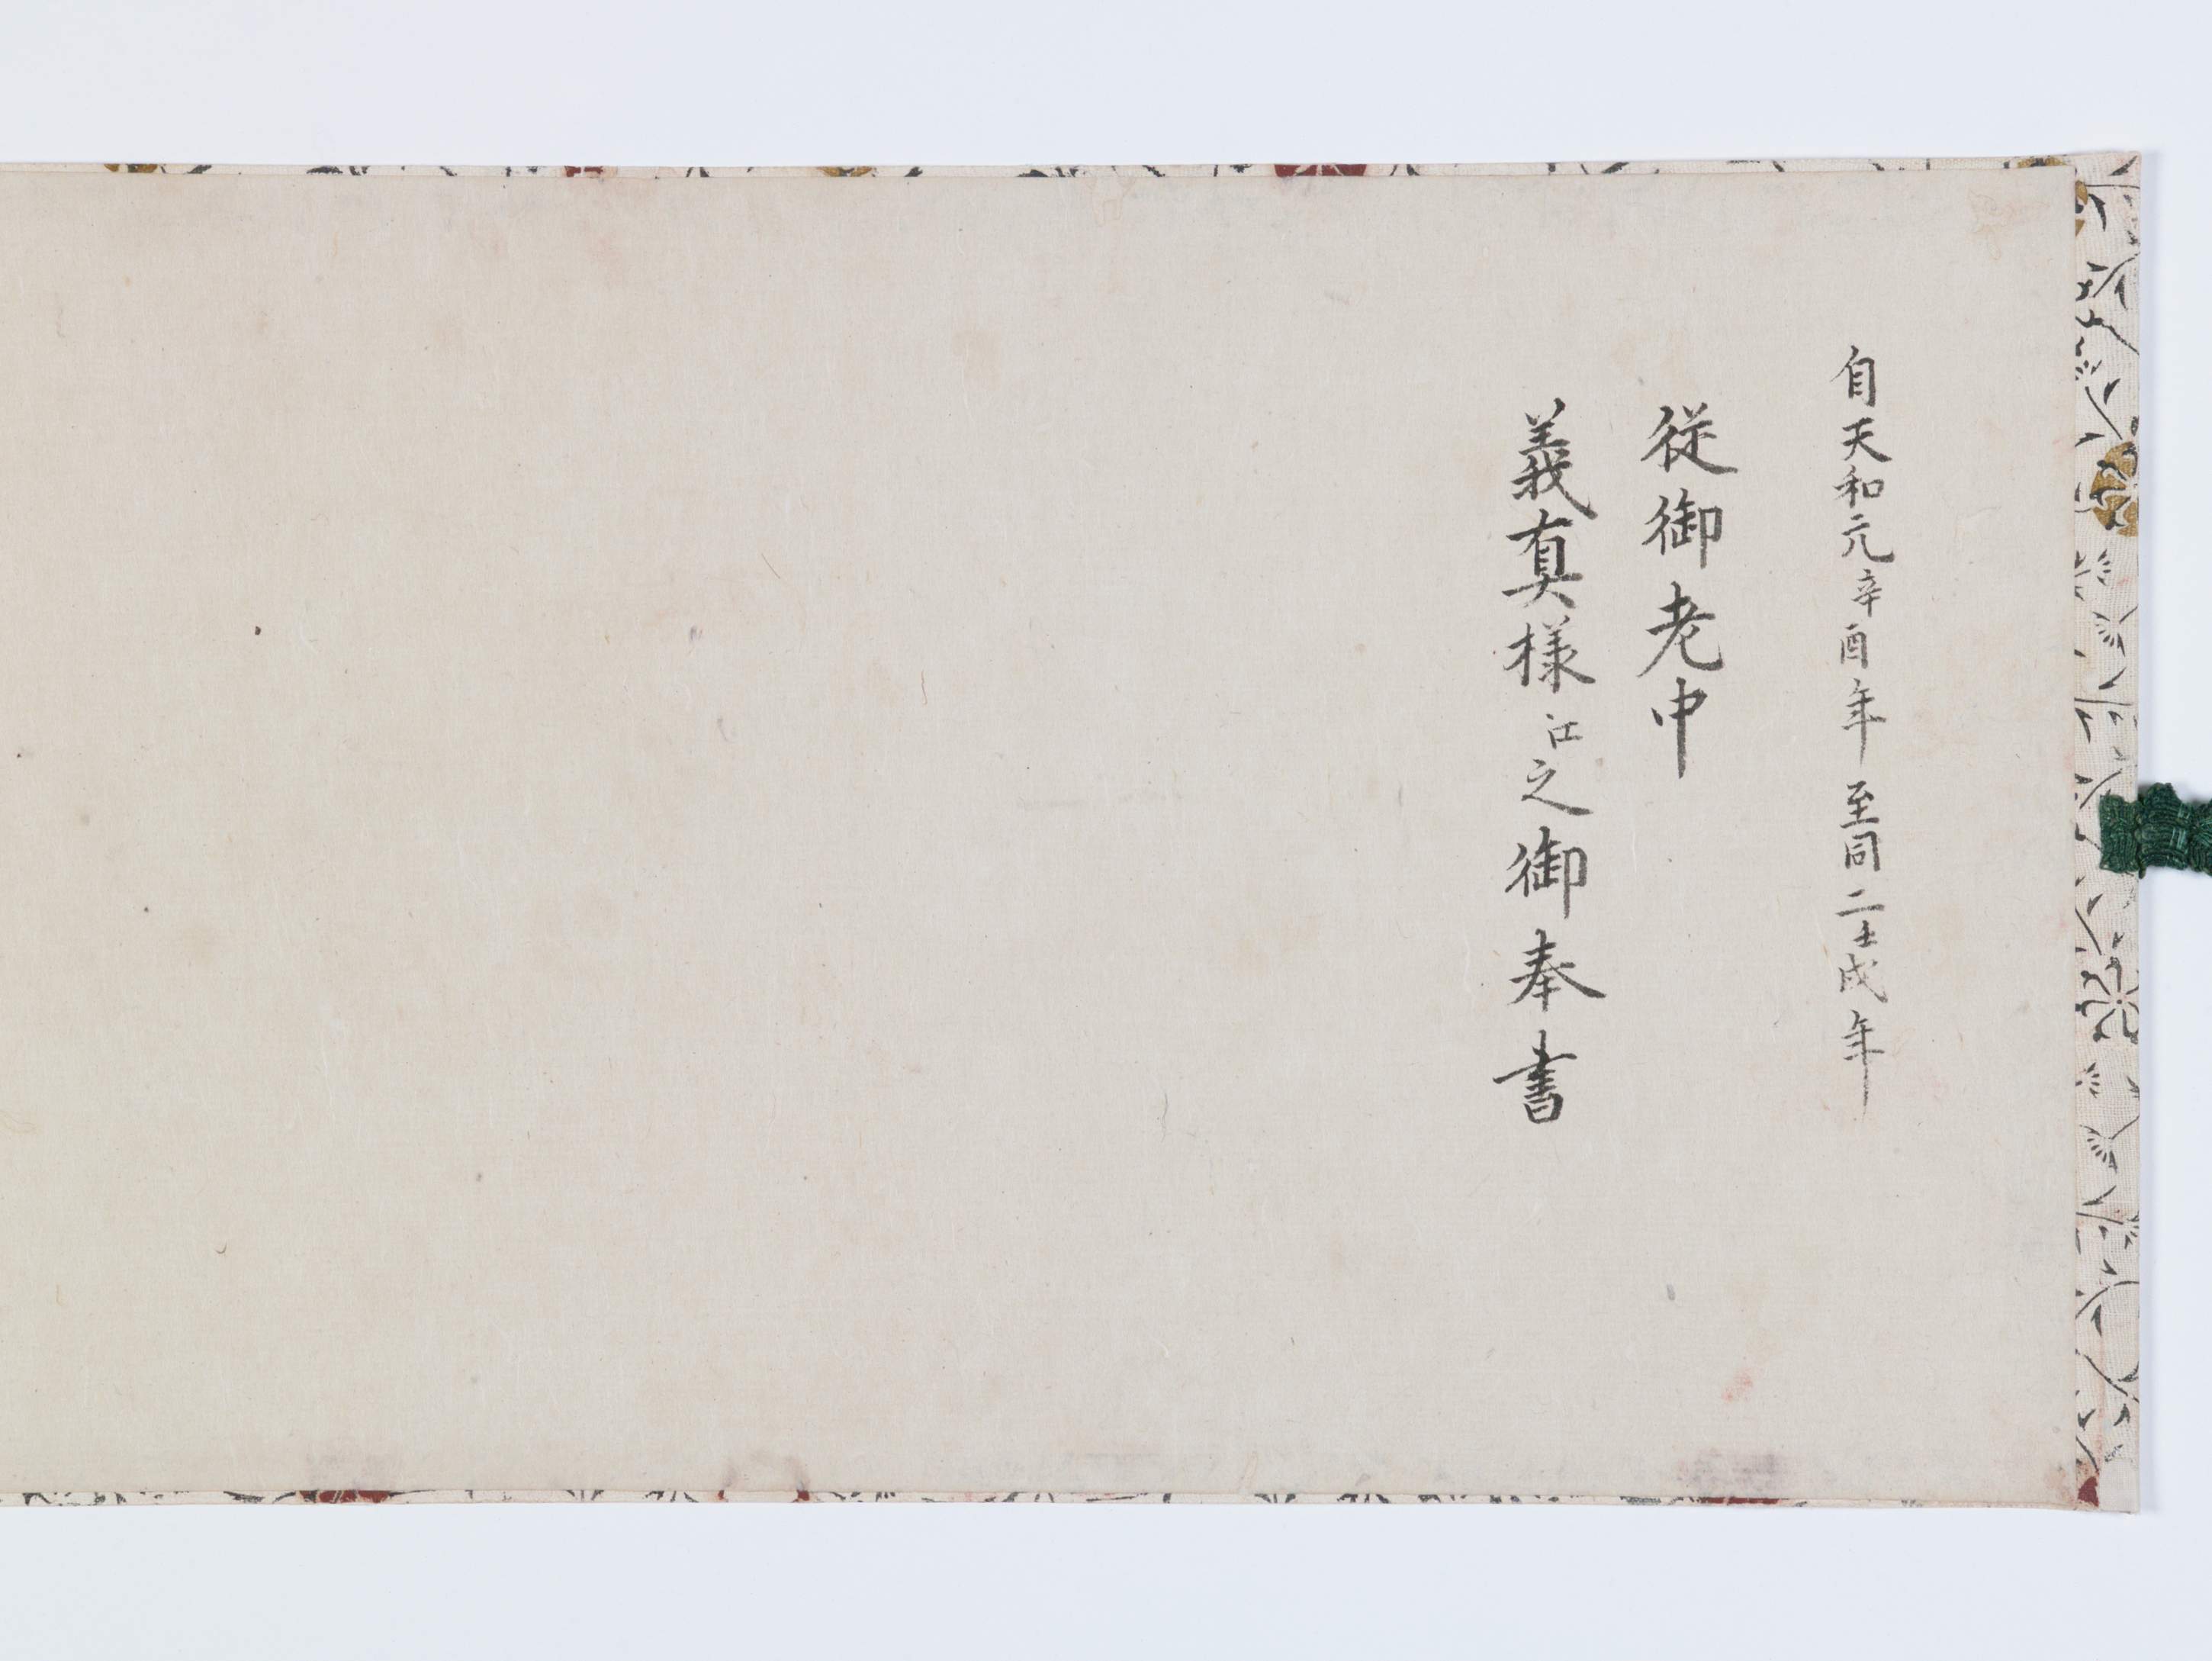 自天和元辛酉年至同二壬戌年
従御老中
義真様江之御奉書